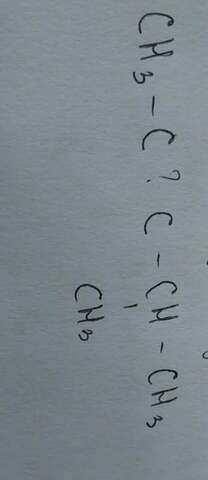 CH₃ – C ? C – CH – CH₃
CH₃